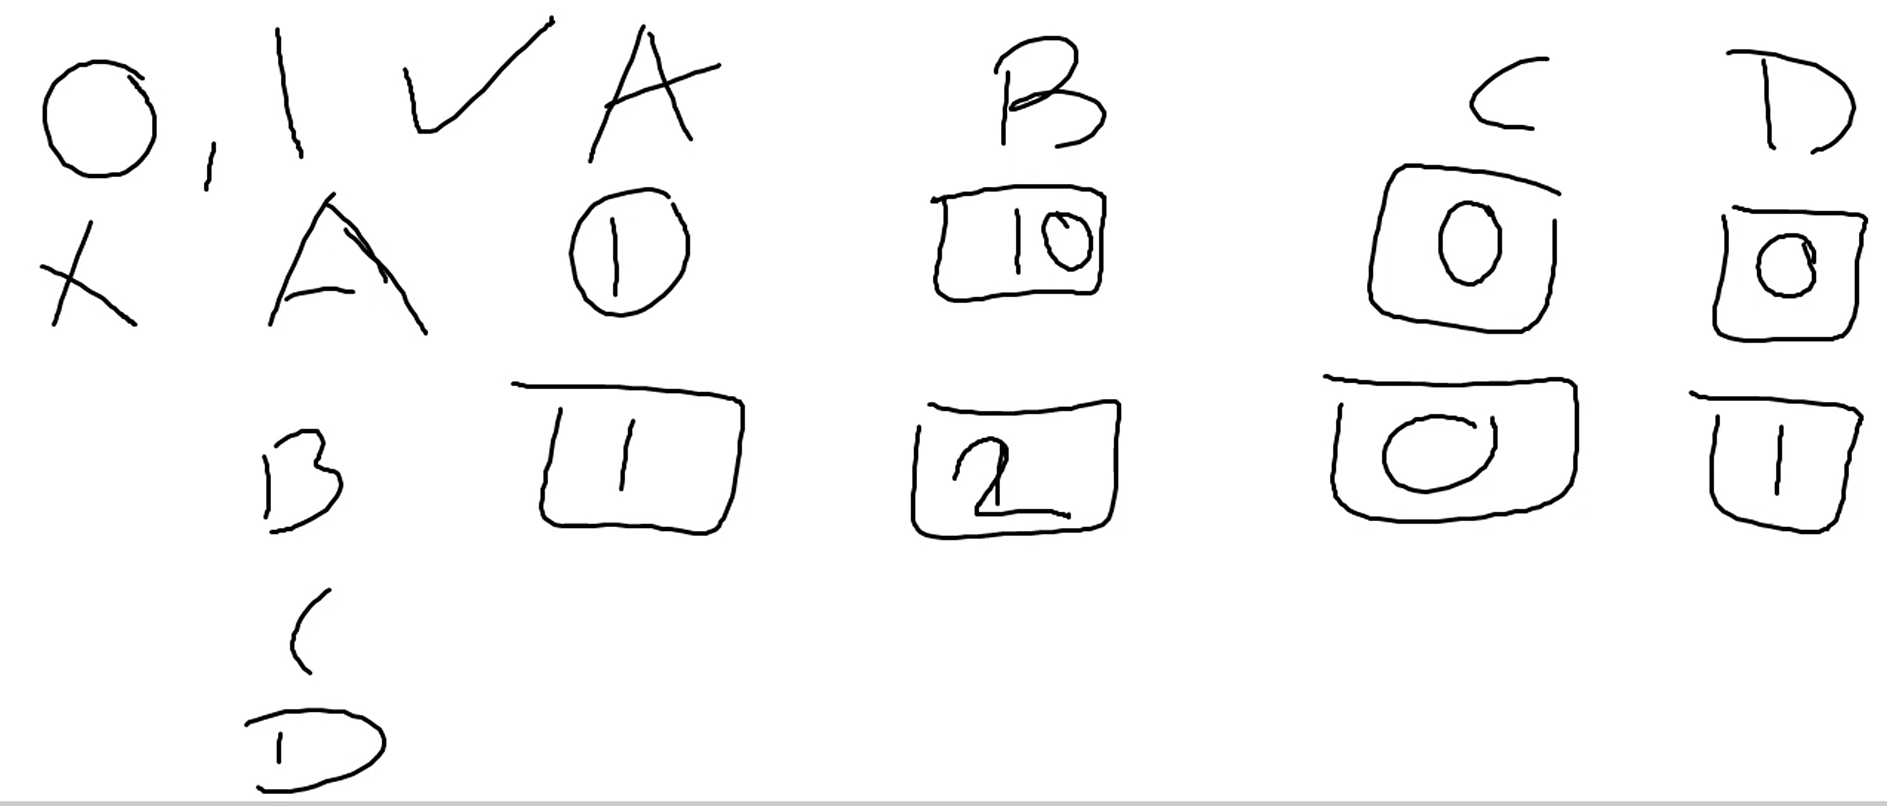 0, 1 ✓ A B C D
X A 1 10 0 0
B 1 2 0 1
C
D